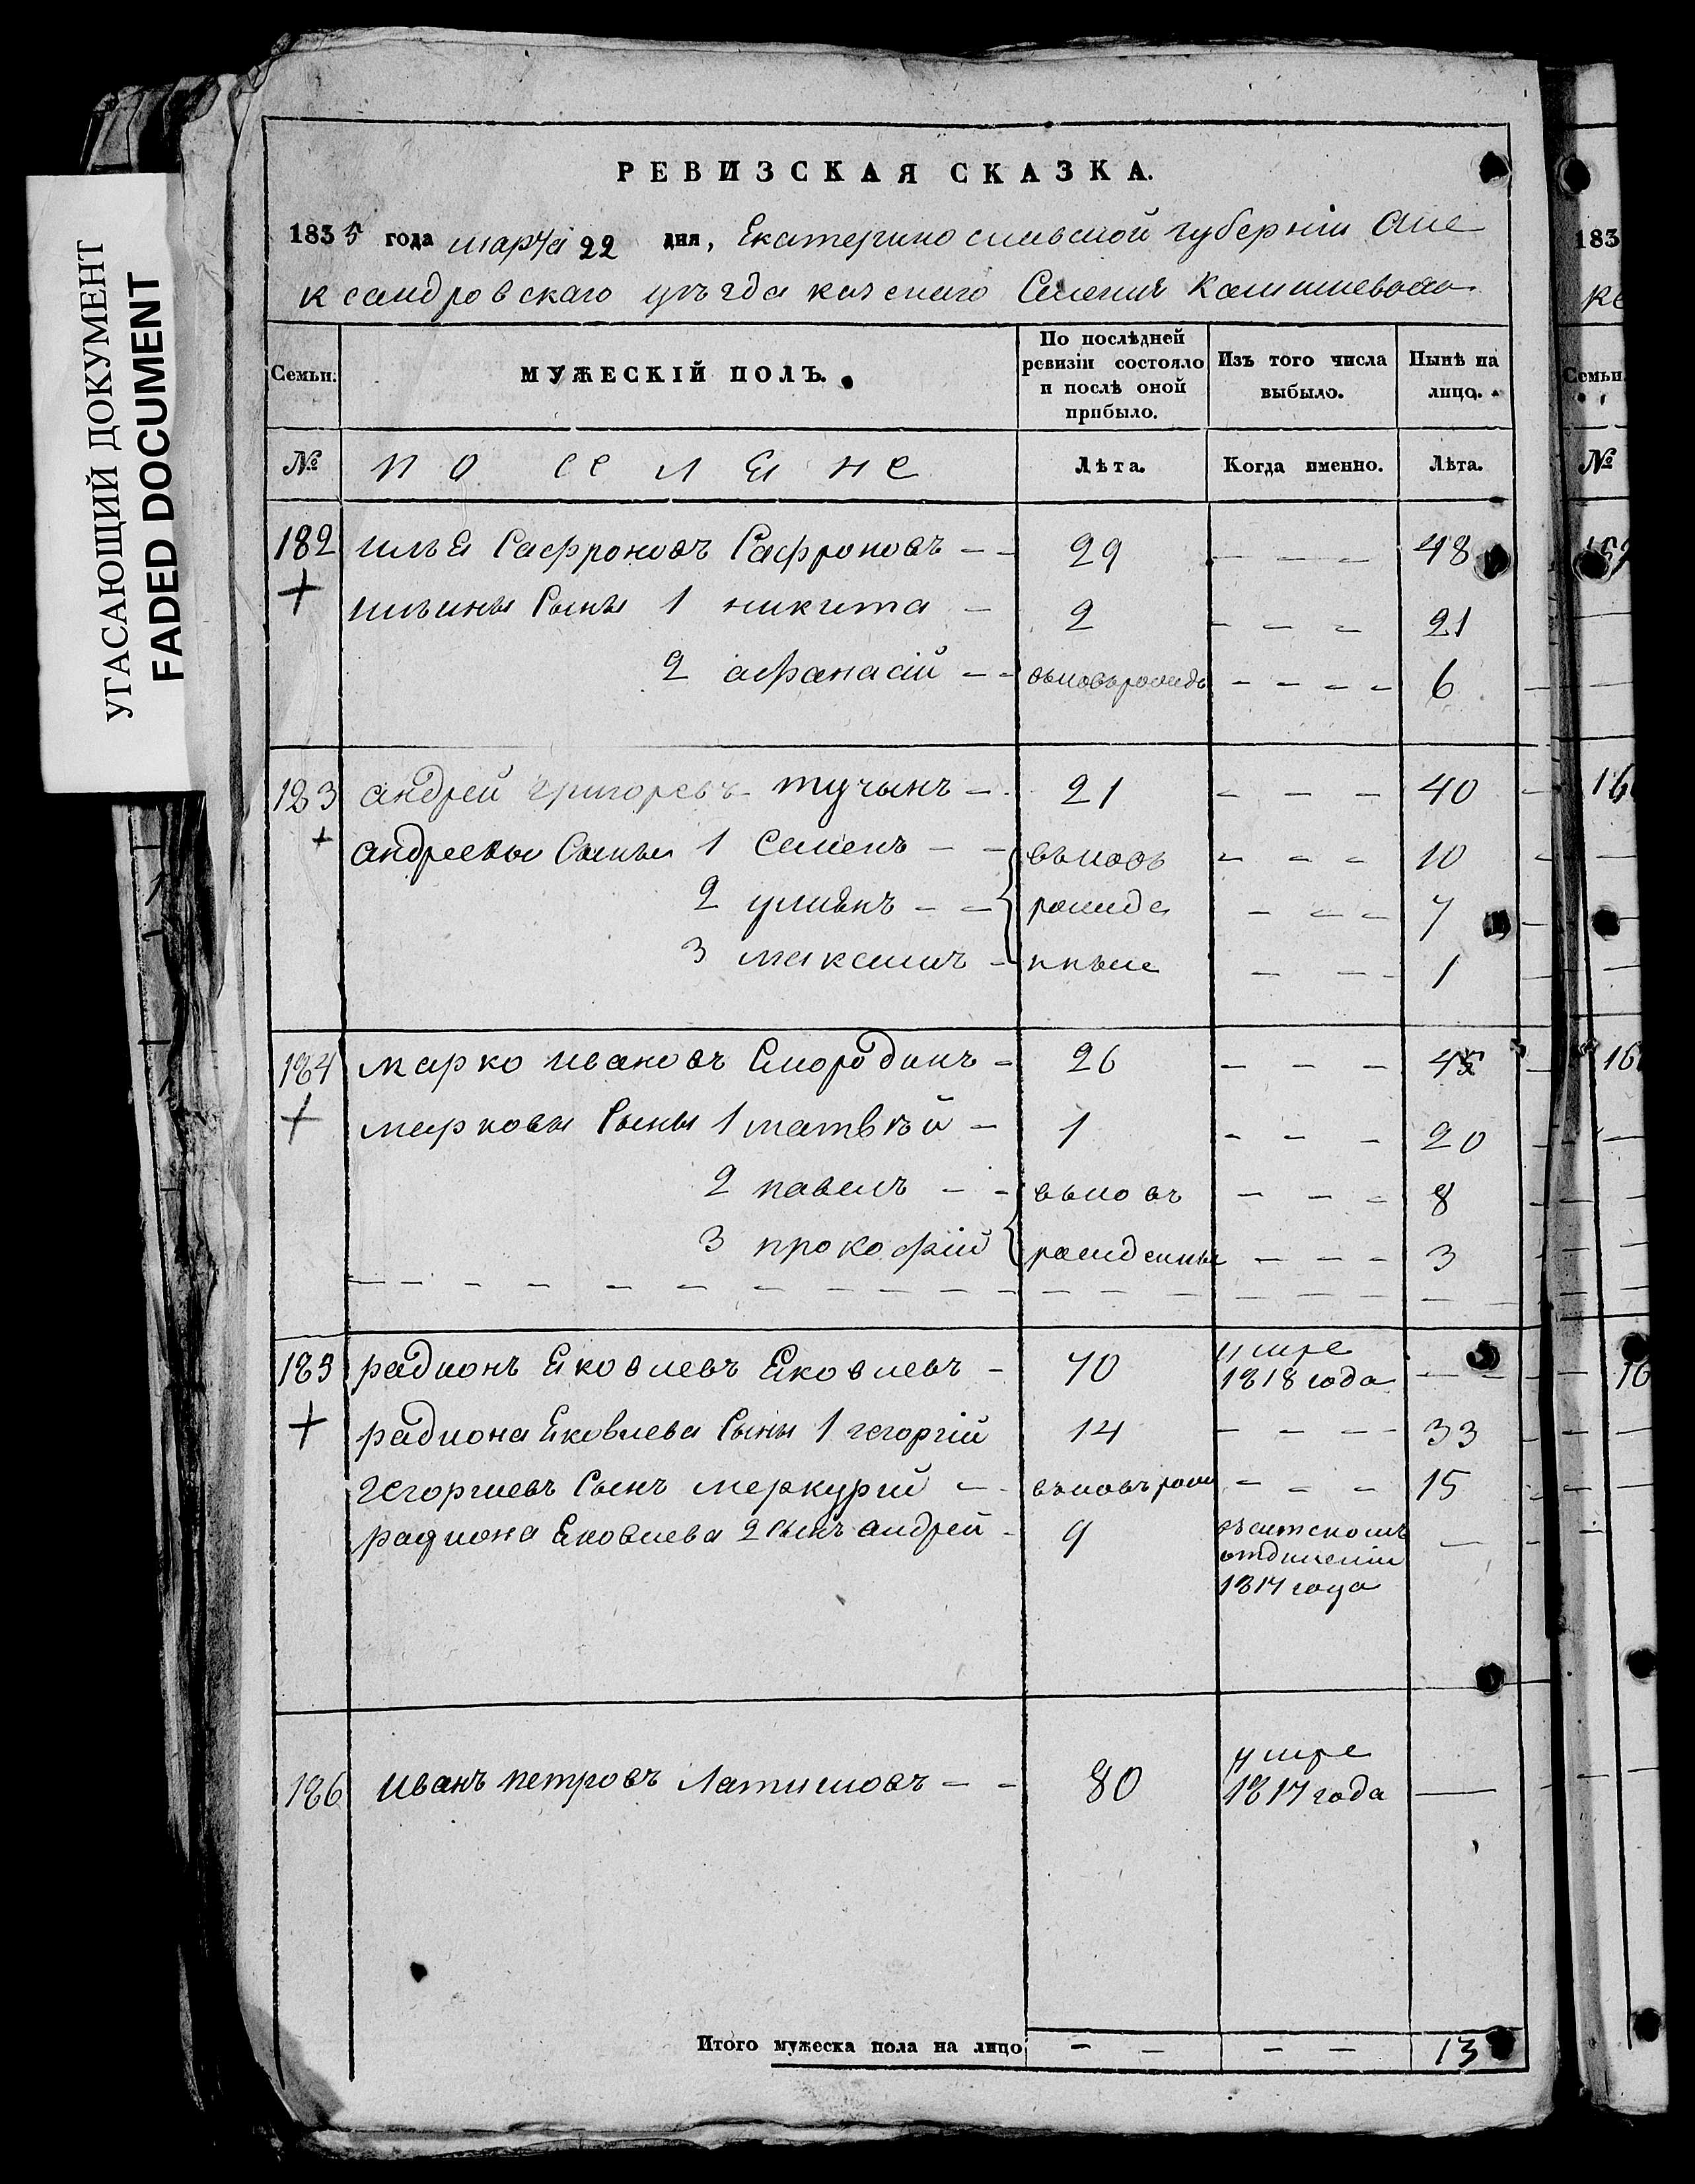 УГАСАЮЩИЙ ДОКУМЕНТ
FADED DOCUMENT
РЕВИЗСКАЯ СКАЗКА.
1835 года марта 22 дня, Екатеринославской губерніи Але
ксандровскаго уѣзда казенаго Селения
Семьи. МУЖЕСКІЙ ПОЛЪ. По послѣдней ревизіи состояло и послѣ оной прибыло. Изъ того числа выбыло. Нынѣ на лицо.
№ поселяне Лѣта. Когда именно. Лѣта.
182 илья Сафроновъ Сафроновъ – – 29 – – – 48
+ ильины Сыны 1 никита – 2 – – – 21
2 афанасій – – вьновьрожде – – – – 6
183 андрей григоревъ тучынъ – 21 – – – 40
+ андреевы Сыны 1 Семенъ – – вьновь – – – 10
2 улиянъ – – рожде – – – 7
3 максимъ – нные – – – 1
184 марко ивановъ Смородинъ – 26 – – – 45
+ марковы Сыны 1 матвѣй – 1 – – – 20
2 павелъ – – вьновь – – – 8
3 прокофій рожденные – – – 3
185 радионъ Яковлевъ Яковлевъ – 70 умре 1818 года –
+ радиона Яковлева Сыны 1 георгій 14 – – – – 33
Георгиевъ Сынъ меркурій – вьновь рож – – – 15
радиона Яковлева 2 Сынъ андрей – 9 1817 года –
186 иванъ петровъ Латишовъ – – 80 умре 1817 года —
Итого мужеска пола на лицо – – – – 13
183
№